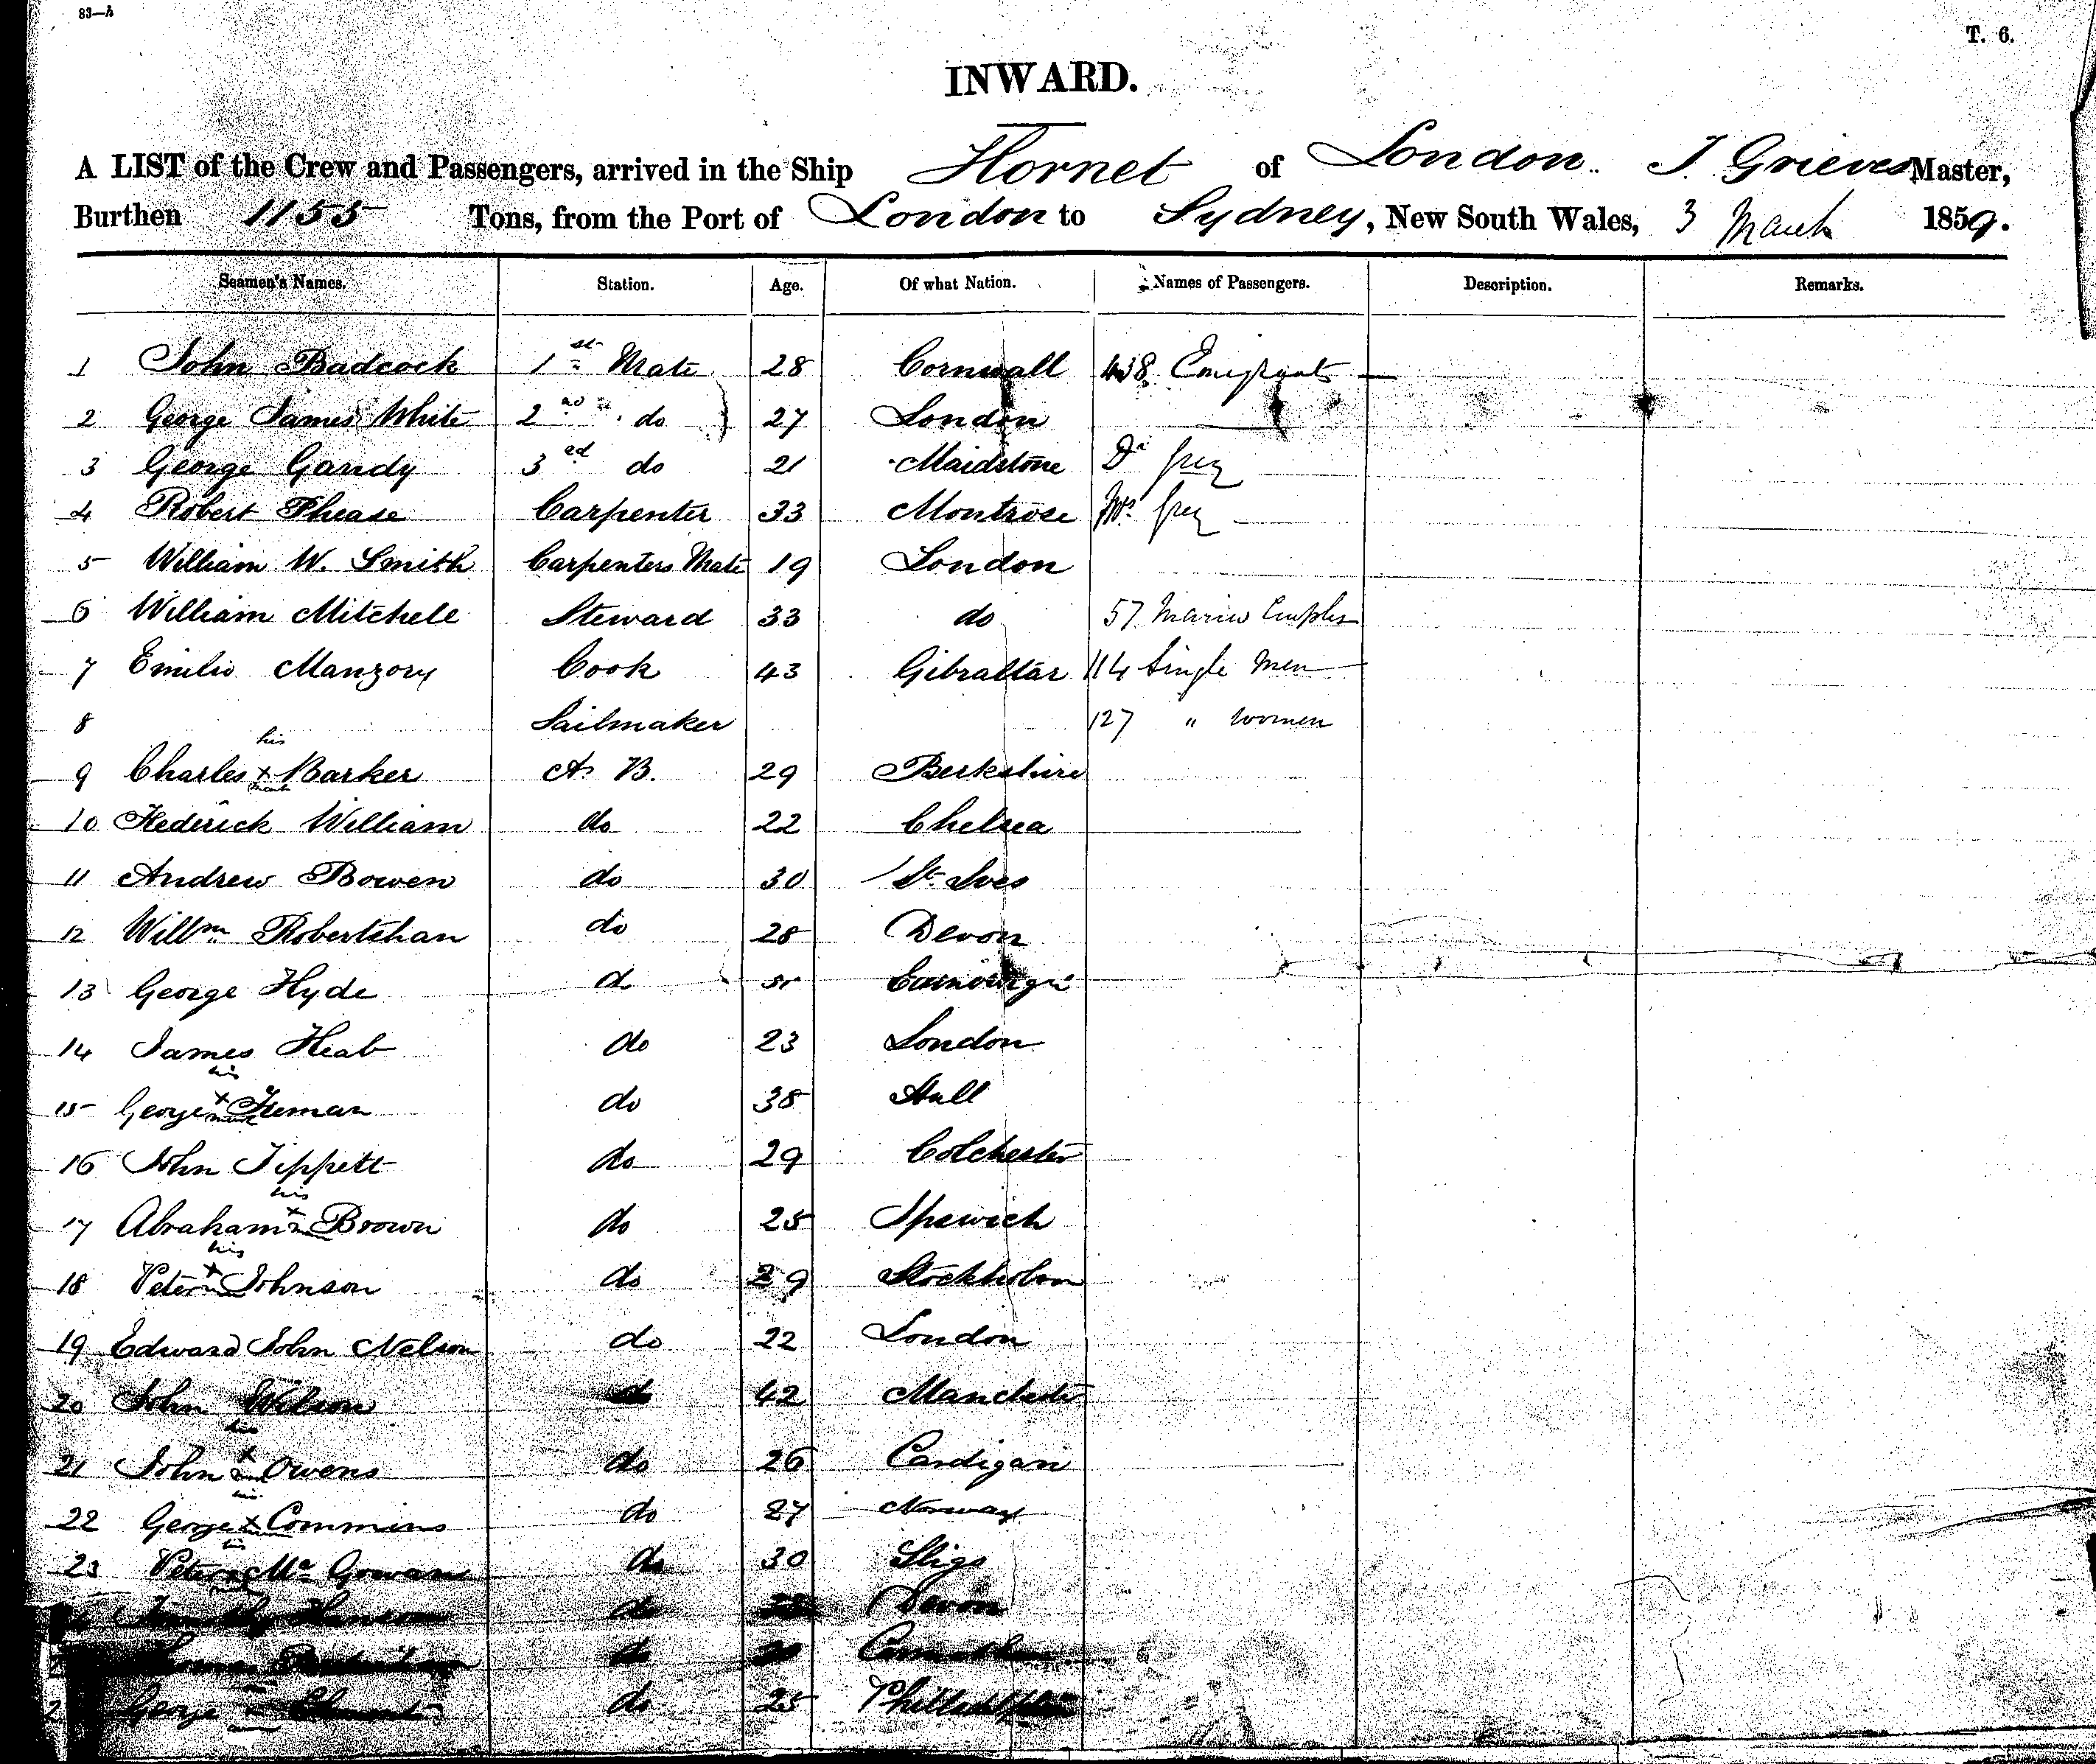 83—h
T. 6.
INWARD.
A LIST of the Crew and Passengers, arrived in the Ship Hornet of London. J. Grieves Master,
Burthen 1155 Tons, from the Port of London to Sydney, New South Wales, 3 March 1859.
Seamen's Names. Station. Age. Of what Nation. Names of Passengers. Description. Remarks.
1 John Badcock 1st Mate 28 Cornwall 438 Emigrants
2 George James White 2nd do 27 London
3 George Gandy 3ed do 21 Maidstone Dr
4 Robert Phease Carpenter 33 Montrose Mrs
5 William W. Smith Carpenters Mate 19 London
6 William Mitchell Steward 33 do 57 Married Couples
7 Emilio Manzory Cook 43 Gibraltar 114 Single Men
8 Sailmaker 127 " women
his
9 Charles x Barker A. B. 29 Berkshire
mark
10 Frederick William do 22 Chelsea
11 Andrew Bowen do 30 St. Ives
12 Willm Robertshan do 28 Devon
13 George Hyde do
14 James Heab do 23 London
his
15 George x Freman do 38 Hull
mark
16 John Tippett do 29 Colchester
his
17 Abraham x Brown do 25 Ipswich
his
18 Peter x Johnson do 29 Stockholm
19 Edward John Nelson do 22 London
20 John Wilson do 42 Manchester
his
21 John x Owens do 26 Cardigan
his
22 George x Commins do 27 Norway
his
23 Peter x Mc Gowan do 30 Sligo
do Devon
Thomas do
George do 25 Philladelphia